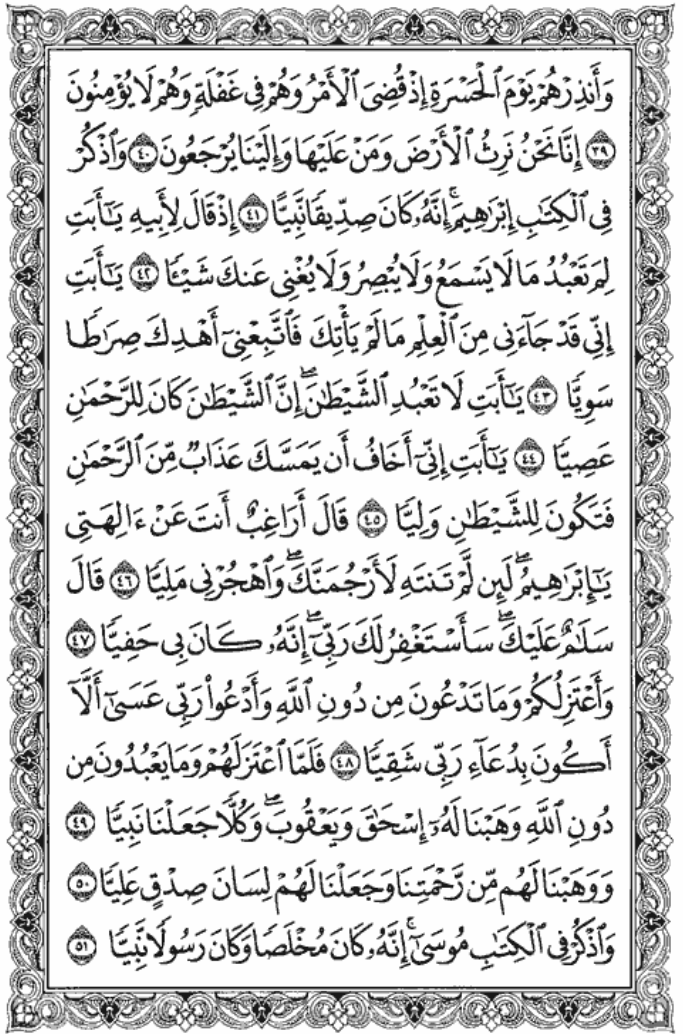 وَأَنذِرْهُمْ يَوْمَ ٱلْحَسْرَةِ إِذْ قُضِىَ ٱلْأَمْرُ وَهُمْ فِى غَفْلَةٍ وَهُمْ لَا يُؤْمِنُونَ
٣٩ إِنَّا نَحْنُ نَرِثُ ٱلْأَرْضَ وَمَنْ عَلَيْهَا وَإِلَيْنَا يُرْجَعُونَ ٤٠ وَٱذْكُرْ
فِى ٱلْكِتَـٰبِ إِبْرَٰهِيمَ ۚ إِنَّهُۥ كَانَ صِدِّيقًا نَّبِيًّا ٤١ إِذْ قَالَ لِأَبِيهِ يَـٰٓأَبَتِ
لِمَ تَعْبُدُ مَا لَا يَسْمَعُ وَلَا يُبْصِرُ وَلَا يُغْنِى عَنكَ شَيْـًٔا ٤٢ يَـٰٓأَبَتِ
إِنِّى قَدْ جَآءَنِى مِنَ ٱلْعِلْمِ مَا لَمْ يَأْتِكَ فَٱتَّبِعْنِىٓ أَهْدِكَ صِرَٰطًا
سَوِيًّا ٤٣ يَـٰٓأَبَتِ لَا تَعْبُدِ ٱلشَّيْطَـٰنَ ۖ إِنَّ ٱلشَّيْطَـٰنَ كَانَ لِلرَّحْمَـٰنِ
عَصِيًّا ٤٤ يَـٰٓأَبَتِ إِنِّىٓ أَخَافُ أَن يَمَسَّكَ عَذَابٌ مِّنَ ٱلرَّحْمَـٰنِ
فَتَكُونَ لِلشَّيْطَـٰنِ وَلِيًّا ٤٥ قَالَ أَرَاغِبٌ أَنتَ عَنْ ءَالِهَتِى
يَـٰٓإِبْرَٰهِيمُ ۖ لَئِن لَّمْ تَنتَهِ لَأَرْجُمَنَّكَ ۖ وَٱهْجُرْنِى مَلِيًّا ٤٦ قَالَ
سَلَـٰمٌ عَلَيْكَ ۖ سَأَسْتَغْفِرُ لَكَ رَبِّىٓ ۖ إِنَّهُۥ كَانَ بِى حَفِيًّا ٤٧
وَأَعْتَزِلُكُمْ وَمَا تَدْعُونَ مِن دُونِ ٱللَّهِ وَأَدْعُوا۟ رَبِّى عَسَىٰٓ أَلَّآ
أَكُونَ بِدُعَآءِ رَبِّى شَقِيًّا ٤٨ فَلَمَّا ٱعْتَزَلَهُمْ وَمَا يَعْبُدُونَ مِن
دُونِ ٱللَّهِ وَهَبْنَا لَهُۥٓ إِسْحَـٰقَ وَيَعْقُوبَ ۖ وَكُلًّا جَعَلْنَا نَبِيًّا ٤٩
وَوَهَبْنَا لَهُم مِّن رَّحْمَتِنَا وَجَعَلْنَا لَهُمْ لِسَانَ صِدْقٍ عَلِيًّا ٥٠
وَٱذْكُرْ فِى ٱلْكِتَـٰبِ مُوسَىٰٓ ۚ إِنَّهُۥ كَانَ مُخْلَصًا وَكَانَ رَسُولًا نَّبِيًّا ٥١